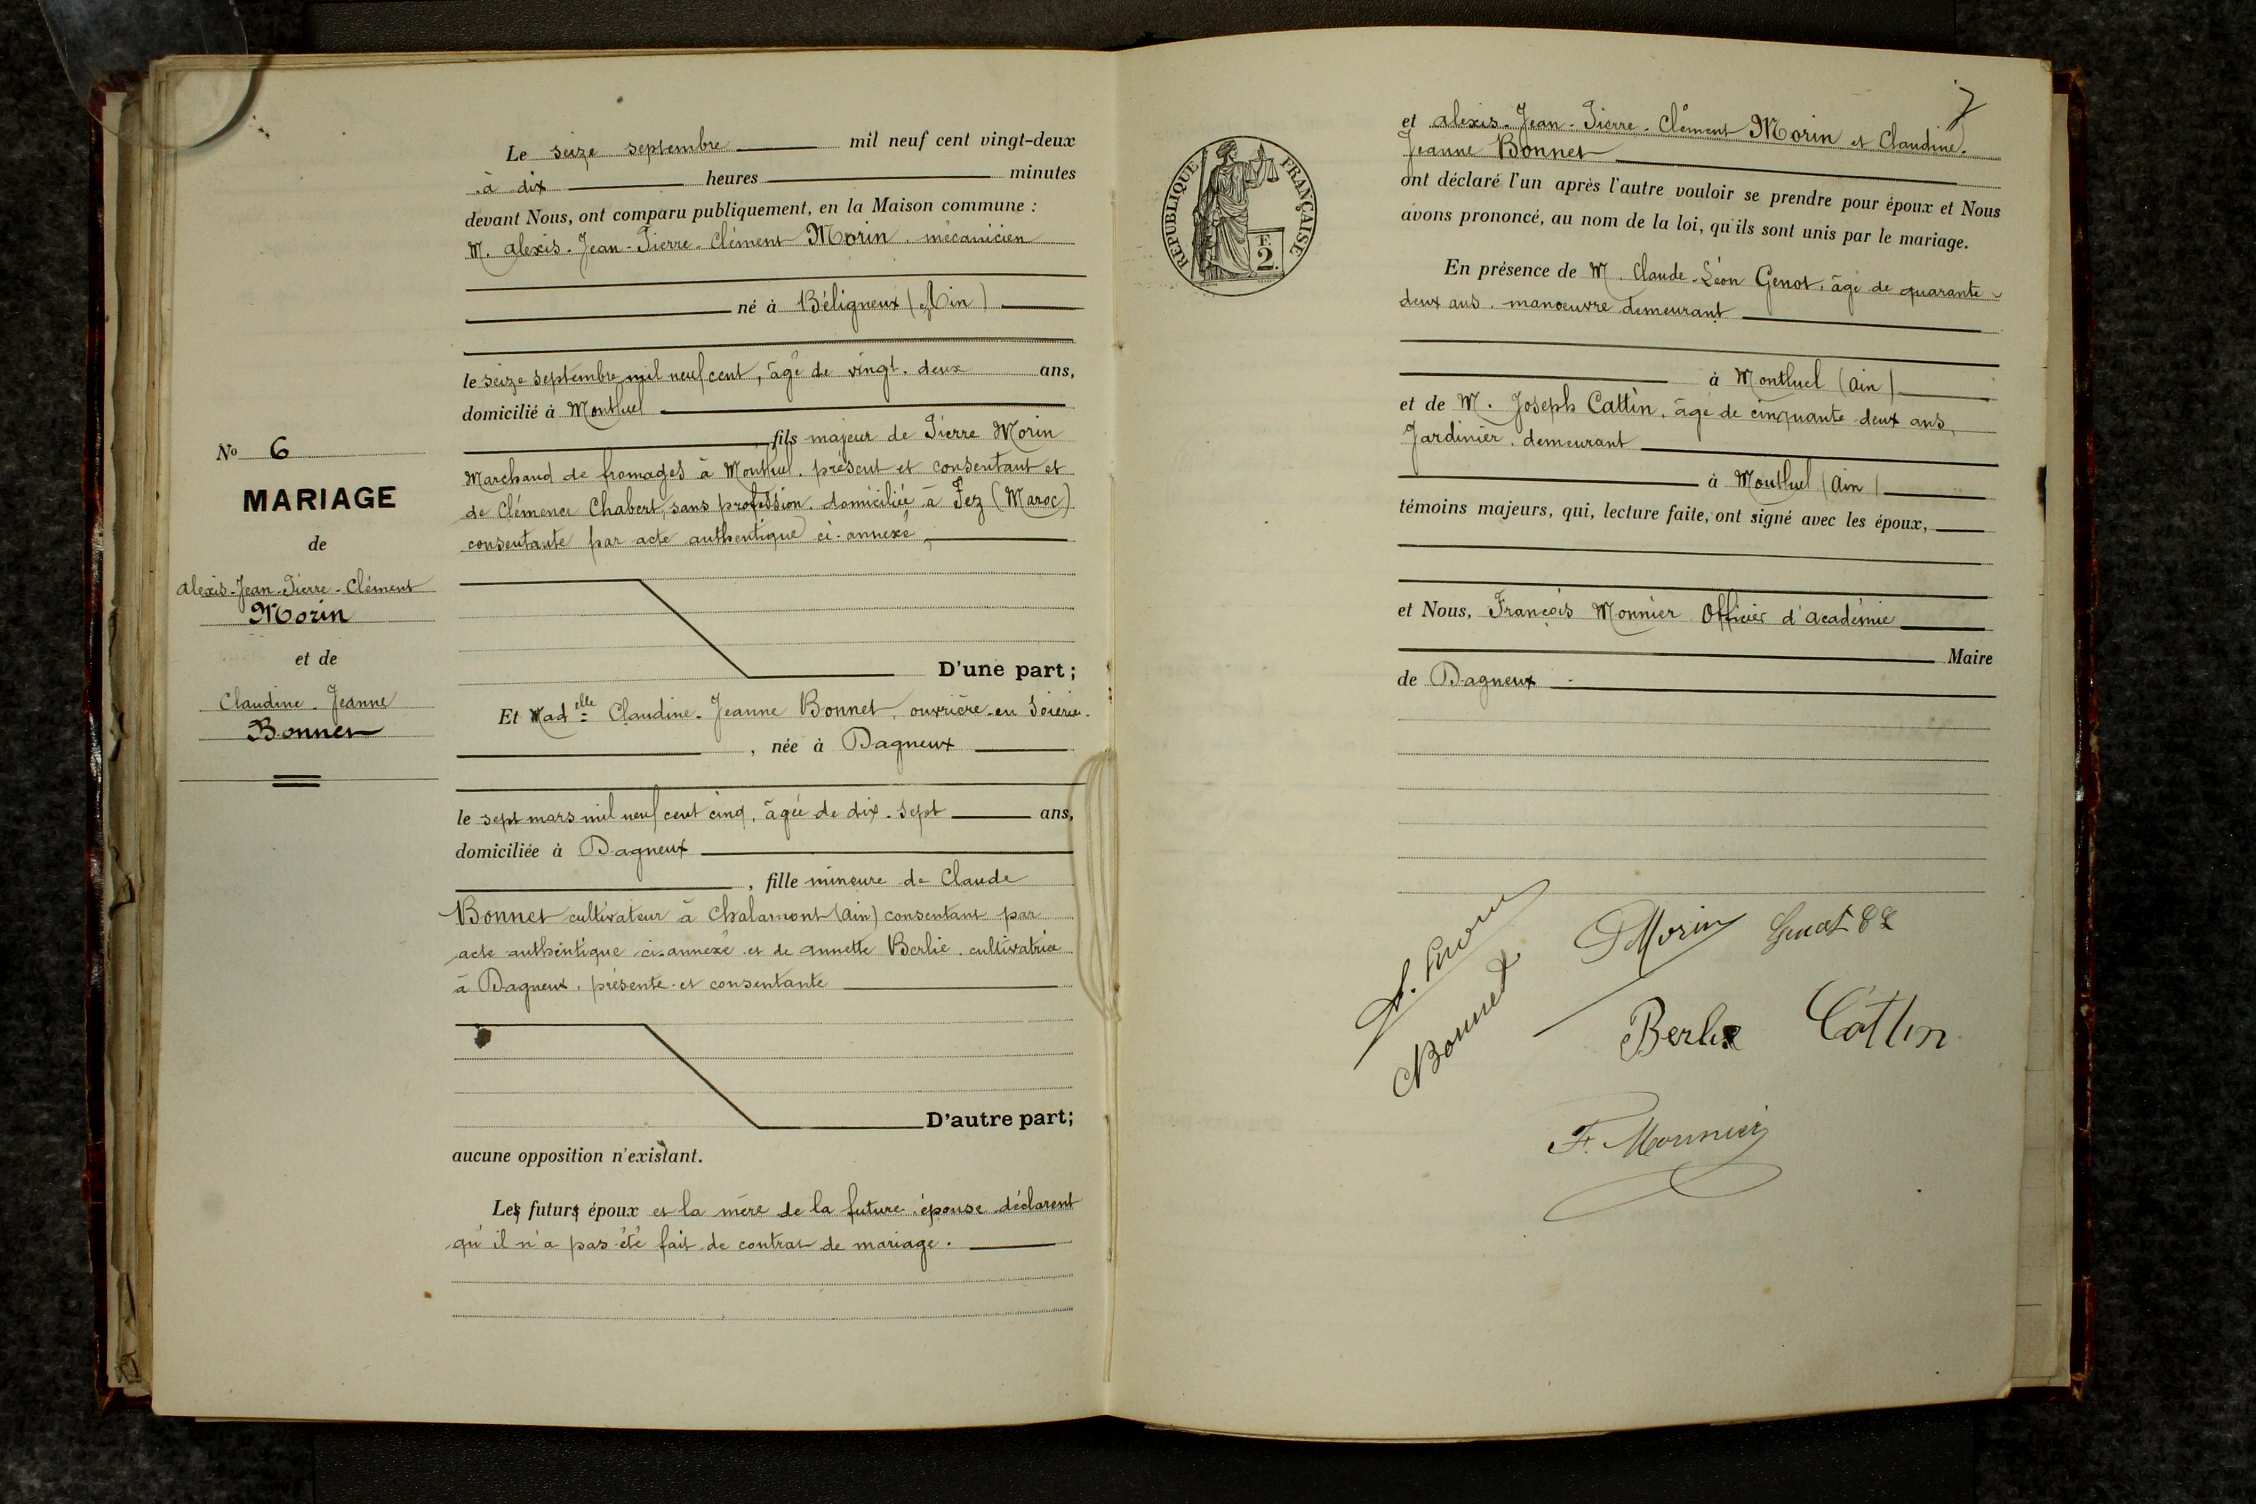 Le seize septembre mil neuf cent vingt-deux
à dix heures minutes
devant Nous, ont comparu publiquement, en la Maison commune :
M. Alexis-Jean-Pierre-Clément Morin. mécanicien
né à Béligneux (Ain)
le seize septembre mil neuf cent, âgé de vingt-deux ans,
domicilié à Montluel
fils majeur de Pierre Morin
Marchand de fromages à Montluel. présent et consentant et
de Clémence Chabert, sans profession. domiciliée à Fez (Maroc)
consentante par acte authentique ci-annexé,
D'une part ;
No 6
MARIAGE
de
Alexis-Jean-Pierre-Clément
Morin
et de
Claudine-Jeanne
Bonnet
Et Mad elle Claudine-Jeanne Bonnet, ouvrière en soierie.
, née à Dagneux
le sept mars mil neuf cent cinq, âgée de dix-sept ans,
domiciliée à Dagneux
, fille mineure de Claude
Bonnet cultivateur à Chalamont (Ain) consentant par
acte authentique ci-annexé et de Annette Berlie. cultivatrice
à Dagneux, présente et consentante
D'autre part ;
aucune opposition n'existant.
Les futurs époux et la mère de la future épouse déclarent
qu'il n'a pas été fait de contrat de mariage.
7
RÉPUBLIQUE FRANÇAISE
F.
2.
et Alexis-Jean-Pierre-Clément Morin et Claudine-
Jeanne Bonnet
ont déclaré l'un après l'autre vouloir se prendre pour époux et Nous
avons prononcé, au nom de la loi, qu'ils sont unis par le mariage.
En présence de M. Claude-Léon Genot, âgé de quarante-
deux ans. manoeuvre demeurant
à Montluel (Ain)
et de M. Joseph Cattin, âgé de cinquante deux ans,
Jardinier. demeurant
à Montluel (Ain)
témoins majeurs, qui, lecture faite, ont signé avec les époux,
et Nous, François Monnier Officier d'Académie
Maire
de Dagneux
Morin
Bonnet
Berlie Cattin
F. Monnier